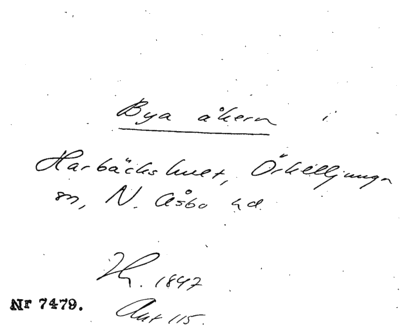 Bya åkern i
Harbäckshult, Örkelljunga
sn, N. Åsbo hd
1847
Nr 7479.
Akt 115.